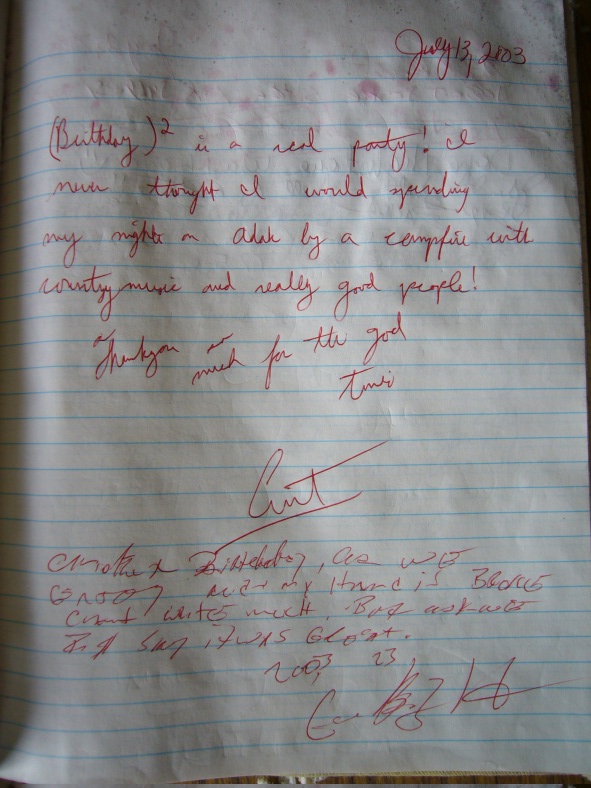 July 13, 2003
(Birthday)² is a real party! I
never thought I would spending
my nights on Adak by a campfire with
country music and really good people!
Thankyou so much for the good
times
Curt
Another Birthday, as we
Enjoy my Hand is Broke
Cant write much, But
say it was Great.
2003